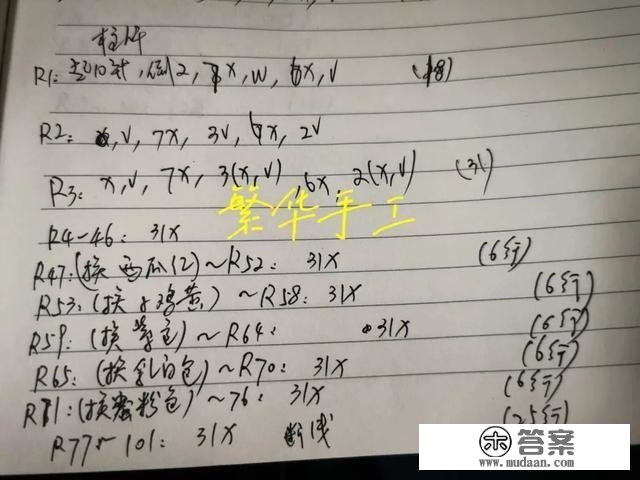 R1: 起10针, 倒2, 7X, W, 6X, V (18)
R2: X, V, 7X, 3V, 6X, 2V
R3: X, V, 7X, 3(X,V), 6X, 2(X,V) (31)
繁华手工
R4-46: 31X
R47:(换西瓜12)~R52: 31X (6行)
R53:(换鸡黄) ~R58: 31X (6行)
R59: (换紫色)~R64: 31X (6行)
R65: (换乳白色)~R70: 31X (6行)
R71:(换蜜粉色)~76: 31X (6行)
R77~101: 31X 断线 (25行)
答案
www.mudaan.com